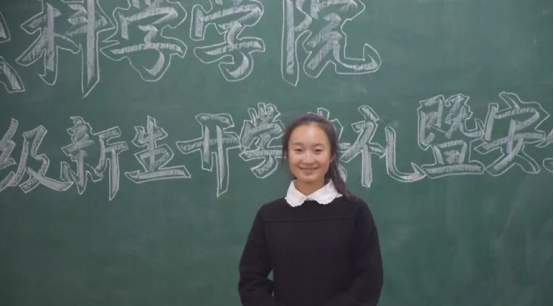 科学学院
级新生开学典礼暨安